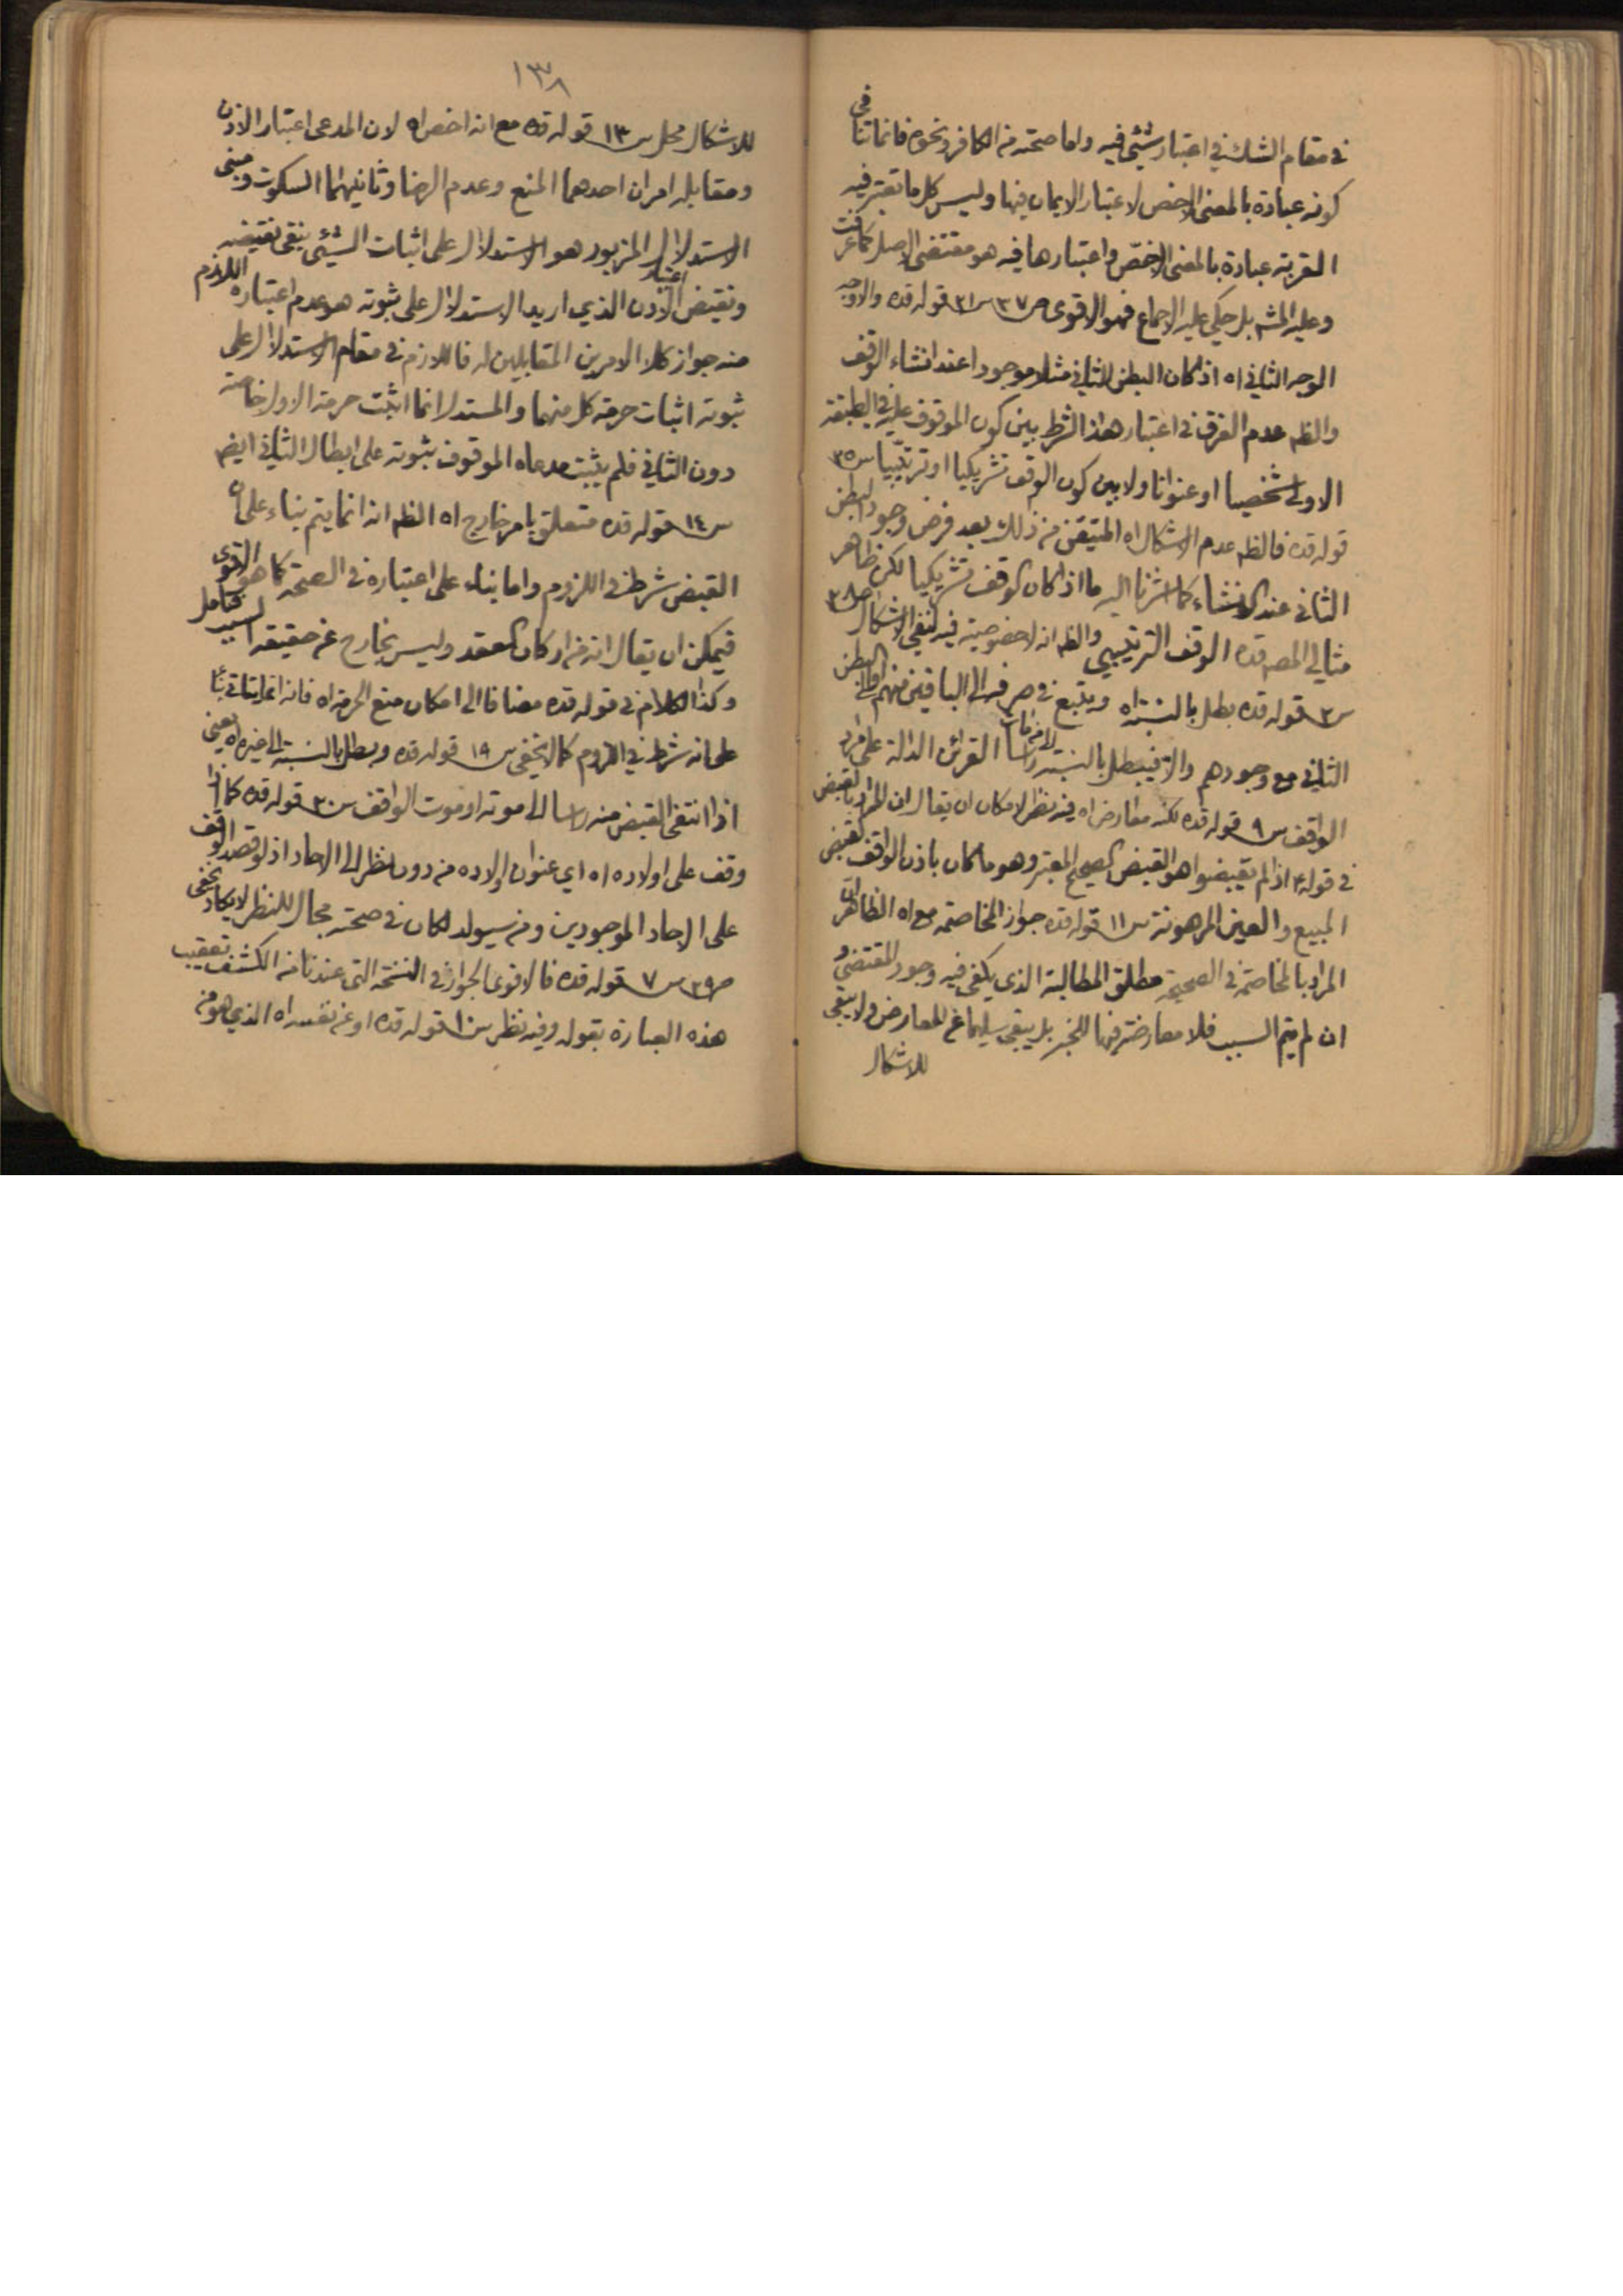 في مقام الشك في اعتبار شيئ فيه واما صحته من الكافر ونحوه فانما تنافي
كونه عبادة بالمعنى الاخص لاعتبار الايمان فيها وليس كلما يعتبر فيه
القربة عبادة بالمعنى الاخصّ واعتبارها فيه هو مقتضى الاصل كما عرفت
وعليه المشه بل حكي عليه الاجماع فهو الاقوى ص٣٧ س٣١ قوله قده والاوجه
الوجه الثاني اه اذ كان البطن الثاني مثلا موجودا عند انشاء الوقف
والظه عدم الفرق في اعتبار هذا الشرط بين كون الموقوف عليه في الطبقة
الاولى شخصيا او عنوانا ولا بين كون الوقف تشريكيا او ترتيبيا س٣٥
قوله قده فالظه عدم الاشكال اه المتيقن من ذلك بعد فرض وجود البطن
الثاني عند الانشاء كما اشرنا اليه ما اذا كان الوقف تشريكيا لكن ظاهر
مثالي المصه قده الوقف الترتيبي والظه انه لاخصوصية فيه لنفي الاشكال ص٣٨
س٣ قوله قده بطل بالنسبة اه ويتبع في صرفه الى الباقين منهم او الى البطن
الثاني مع وجودهم والا فيبطل بالنسبة لا من مات راسا القرائن الدالة على مراد
الواقف س٩ قوله قده لكنه معارض اه فيه نظر لامكان ان يقال ان المراد بالقبض
في قوله ع اذا لم يقبضوا هو القبض الصحيح المعتبر وهو ما كان باذن الواقف كقبض
المبيع والعين المرهونة س١١ قوله قده جواز المخاصمة مع اه الظاهر ان
المراد بالمخاصمة في الصحيحة مطلق المطالبة الذي يكفي فيه وجود المقتضي و
ان لم يتم السبب فلا معارضة فيها للخبر بل يبقى سليما عن المعارض ولا يبقى
للاشكال
١٣٨
للاشكال محل س١٣ قوله قده مع انه اخص اه لان المدعى اعتبار الاذن
ومقابله امران احدهما المنع وعدم الرضا وثانيهما السكوت ومبنى
الاستدلال المزبور هو الاستدلال على اثبات الشيئ بنفي نقيضه
ونقيض اعتبار الاذن الذي اريد الاستدلال على ثبوته هو عدم اعتباره اللازم
منه جواز كلا الامرين المقابلين له فاللازم في مقام الاستدلال على
ثبوته اثبات حرمة كل منهما والمستدل انما اثبت حرمة الاول خاصة
دون الثاني فلم يثبت مدعاه الموقوف ثبوته على ابطال الثاني ايضه
س١٤ قوله قده متعلق بامر خارج اه الظه انه انما يتم بناء على ان
القبض شرط في اللزوم واما بناء على اعتباره في الصحة كما هو الاقوى
فيمكن ان يقال انه من اركان العقد وليس بخارج عن حقيقة السبب فتامل
وكذا الكلام في قوله قده مضافا الى امكان منع الحرمة اه فانه انما يتاتى بناء
على انه شرط في اللزوم كما لايخفى س١٩ قوله قده وبطل بالنسبة الى غيره اه يعني
اذا انتفى القبض منه راسا الى موته او موت الواقف س٢٠ قوله قده كما اذا
وقف على اولاده اه اي عنوان اولاده من دون نظر الى الاحاد اذ لو قصد الوقف
على الاحاد الموجودين ومن سيولد لكان في صحته مجال للنظر لا يكاد يخفى
ص٣٩ س٧ قوله قده فالاقوى الجواز في النسخة التي عندنا من الكشف تعقيب
هذه العبارة بقوله وفيه نظر س١٠ قوله قده او عن نفسه اه الذي هو من